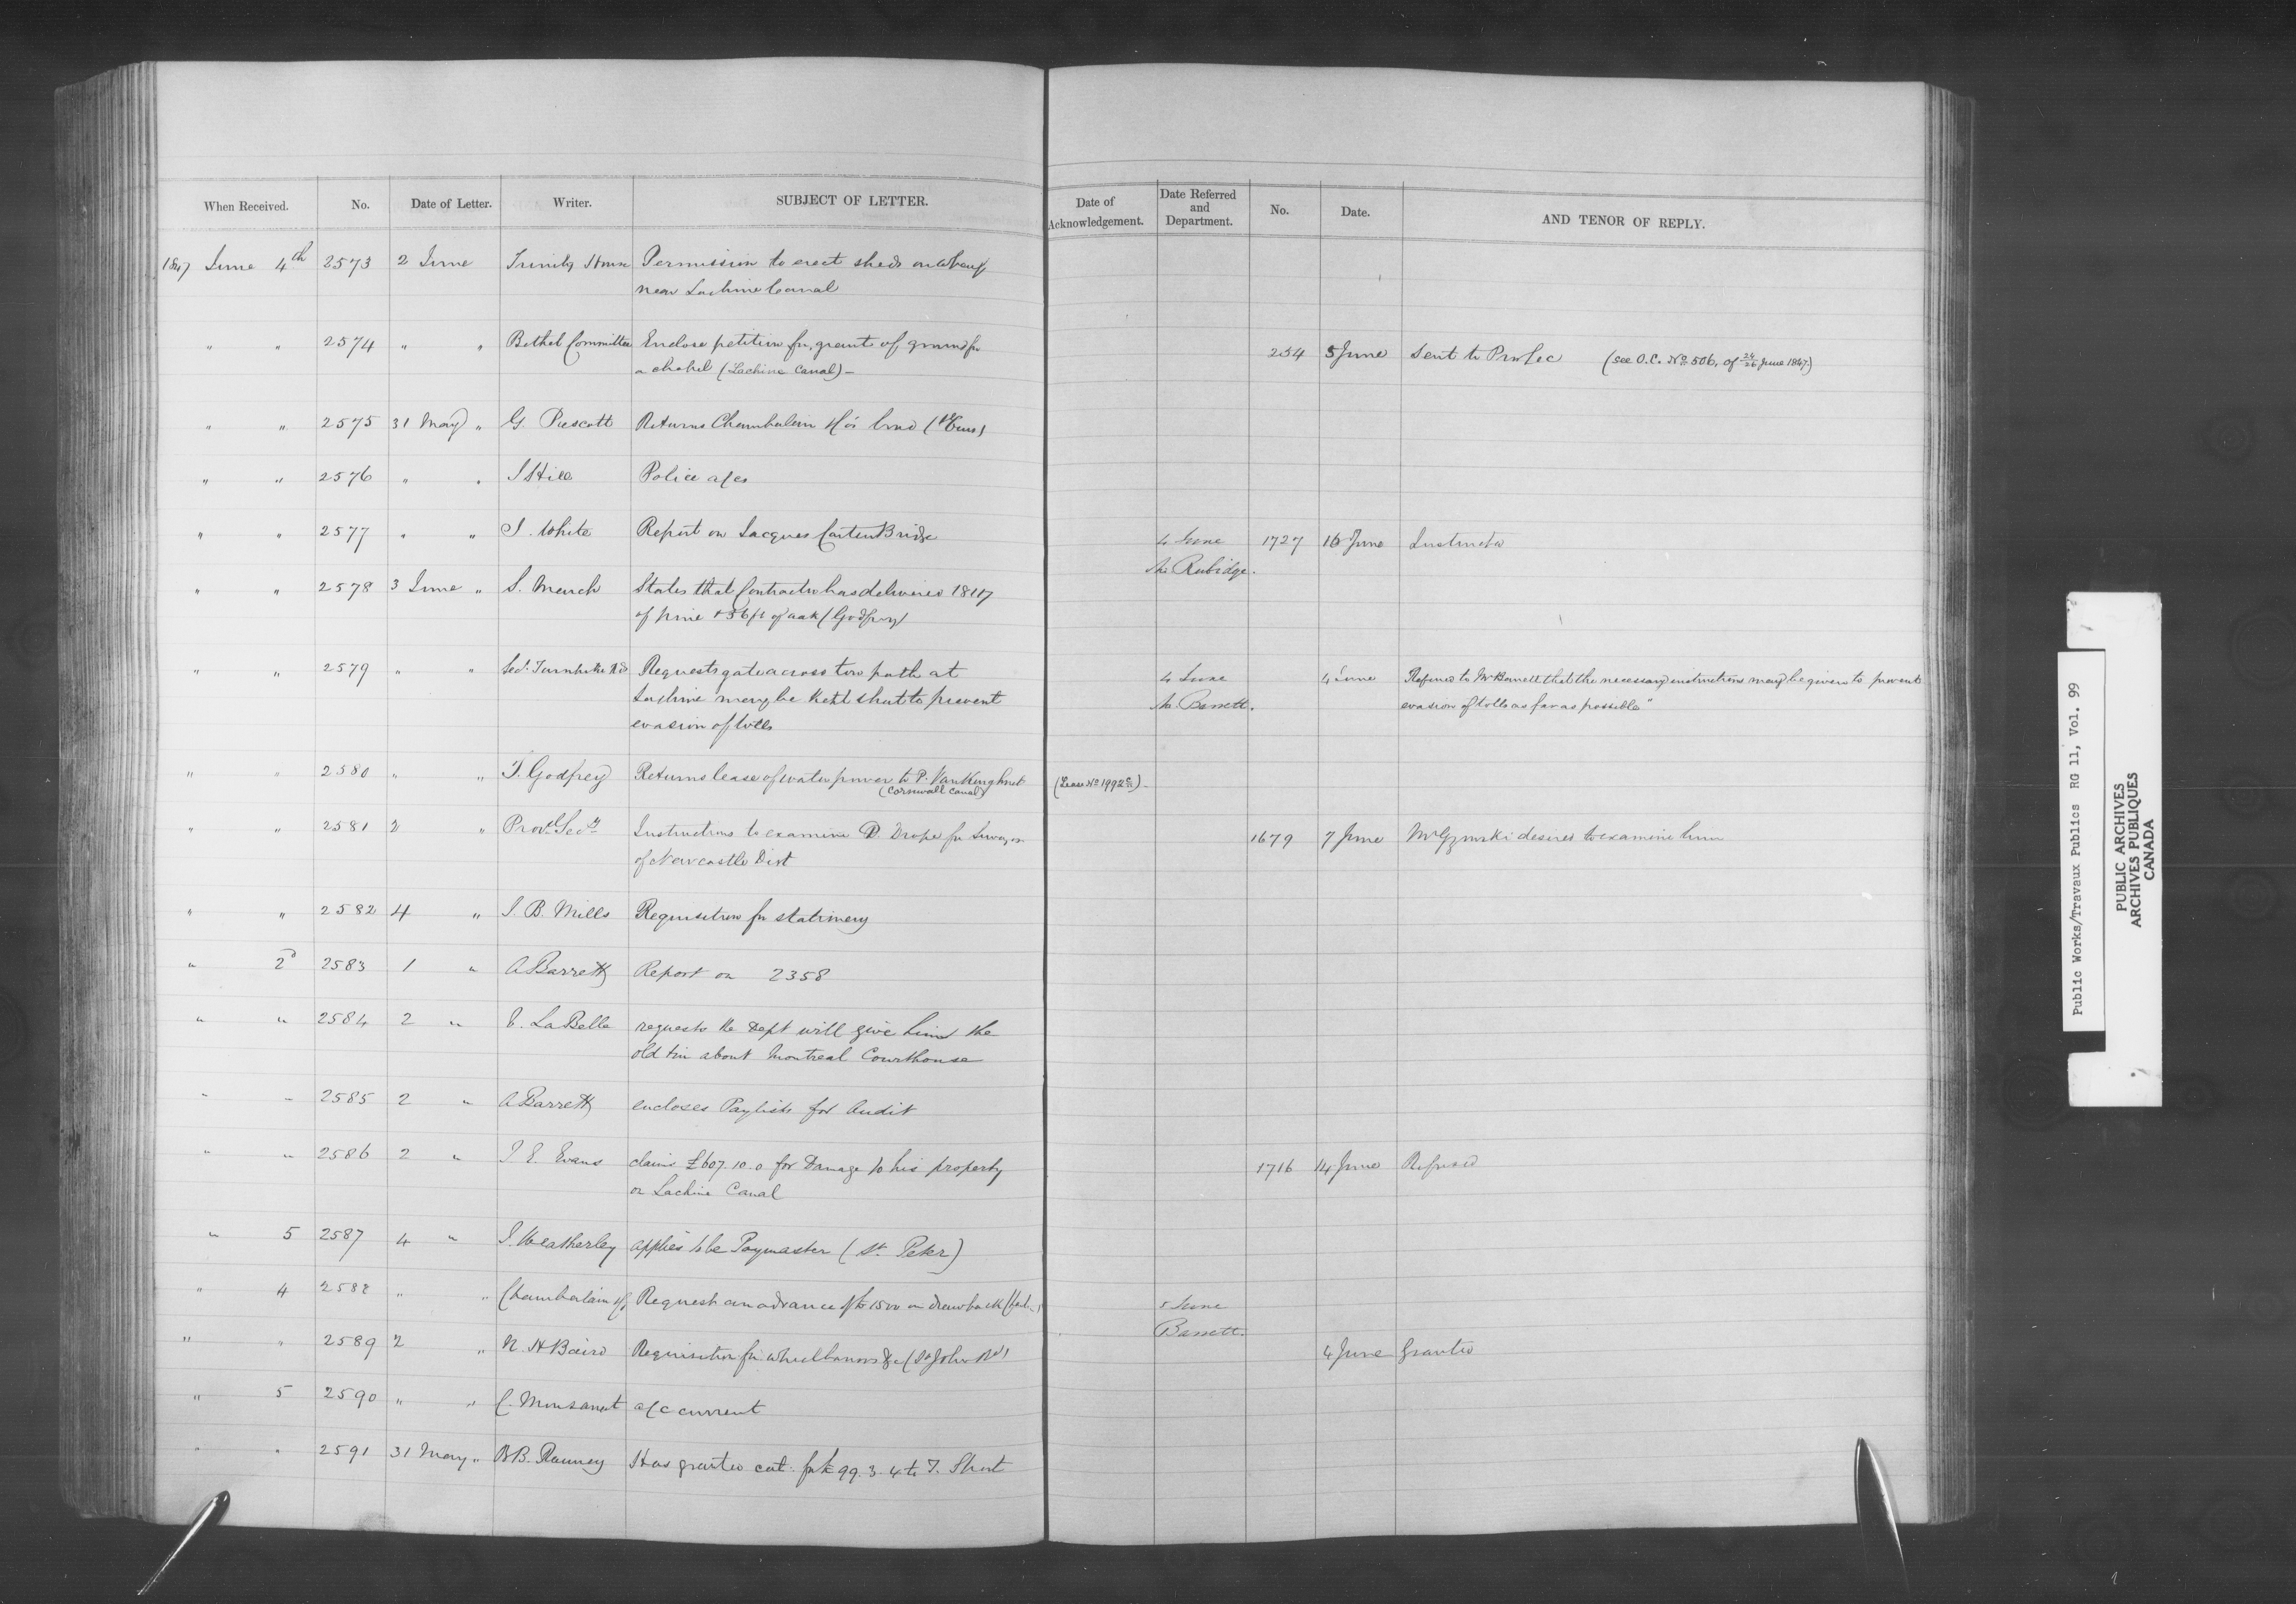 When Received. No. Date of Letter. Writer. SUBJECT OF LETTER. Date of Acknowledgement. Date Referred and Department. No. Date. AND TENOR OF REPLY.
1847 June 4th 2573 2 June Trinity House Permission to erect sheds on wharf
near Lachine Canal
" " 2574 " " Bethel Committee Enclose petition for grant of ground for 254 5 June Sent to Pro Sec (see O.C. No 506, of 24/26 June 1847.)
a chapel (Lachine Canal) -
" " 2575 31 May " G. Prescott Returns Chamberlain &c's bond
" " 2576 " " J Hill Police a/cs
" " 2577 " " J. White Report on Jacques Cartier Bridge 4 June 1727 16 June Instructed
Mr Rubidge.
" " 2578 3 June " S. March States that Contractor has delivered
of pine + 36 ft of oak (Godfrey)
" " 2579 " " Sec. Turnpike Rds Requests gate across tow path at 4 June 4 June Referred to Mr Barrett that the necessary instructions may be given to prevent
Lachine may be kept shut to prevent Mr. Barrett. evasion of tolls as far as possible"
evasion of tolls
" " 2580 " " T. Godfrey Returns lease of water power to P. VanKoughnet (Lease No 1992)-
(Cornwall Canal)
" " 2581 2 " Provl Secy Instructions to examine P. Drope for Surveyor 1679 7 June Mr Gzowski desired to examine him
of Newcastle Dist
" " 2582 4 " J. B. Mills Requisition for stationery
" 2d 2583 1 " A Barrett Report on 2358
" " 2584 2 " E. LaBelle requests the Dept will give him the
old tin about Montreal Courthouse
" " 2585 2 " A Barrett encloses Paylists for Audit
" " 2586 2 " J. E. Evans claims £607.10.0 for Damage to his property 1716 14 June Refused
on Lachine Canal
" 5 2587 4 " J. Weatherley applies to be Paymaster (St. Peter)
" 4 2588 " " Chamberlain &c Request an advance of £1500 on drawback 5 June
Barrett.
" " 2589 2 " N. H Baird Requisition for wheelbarrows &c (St John Rd) 4 June Granted
" 5 2590 " " C. Monsarrat a/c current
" " 2591 31 May " B. Ranney Has granted cert. for £99.3.4 to T. Short
Public Works/Travaux Publics RG 11, Vol. 99
PUBLIC ARCHIVES
ARCHIVES PUBLIQUES
CANADA